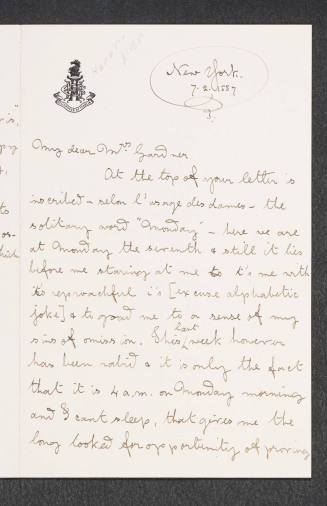 New York.
7. 2. 1887
My dear Mrs Gardner
At the top of your letter is
inscribed - selon l'usage des dames - the
solitary word "Monday" - here we are
at Monday the seventh & still it lies
before me staring at me to t's me with
its reproachful i's [excuse alphabetic
joke] & to goad me to a sense of my
sins of omission. This last week however
has been rabid & it is only the fact
that it is 4 a.m. on Monday morning
and I cant sleep, that gives me the
long looked for opportunity of proving